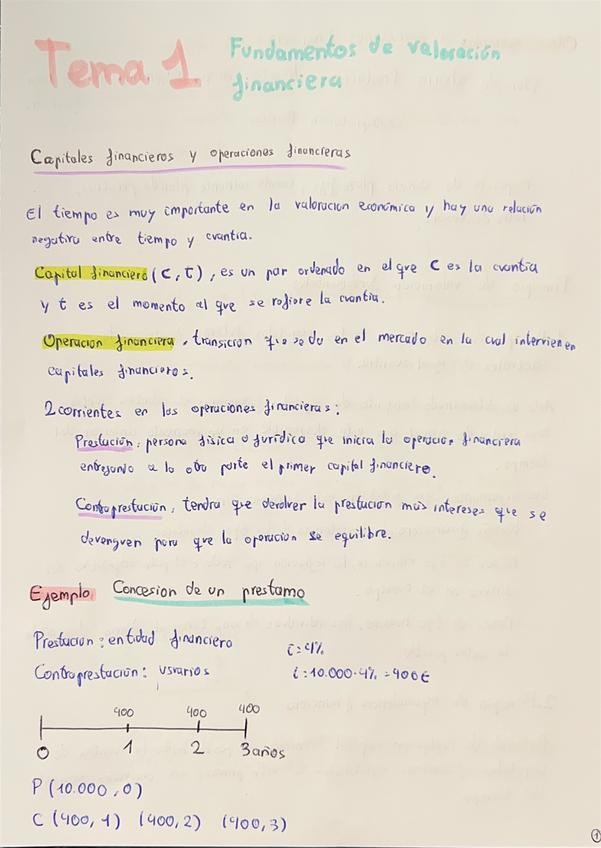 Tema 1
Fundamentos de valoración
financiera
Capitales financieros y operaciones financieras
El tiempo es muy importante en la valoracion económica y hay una relación
negativa entre tiempo y cuantia.
Capital financiero (C, t), es un par ordenado en el que C es la cuantia
y t es el momento al que se refiere la cuantia.
Operacion financiera, transición que se da en el mercado en la cual intervienen
capitales financieros.
2 corrientes en las operaciones financieras:
Prestacion: persona fisica o juridica que inicia la operacion financiera
entregando a la otra parte el primer capital financiero.
Contraprestacion, tendra que devolver la prestacion mas intereses que se
devenguen para que la operacion se equilibre.
Ejemplo Concesion de un prestamo
Prestacion: entidad financiera
Contraprestacion: usuarios
i=4%
i:10.000·4% = 400€
400 400 400
0 1 2 3 años
P (10.000, 0)
C (400, 1) (400, 2) (400, 3)
1